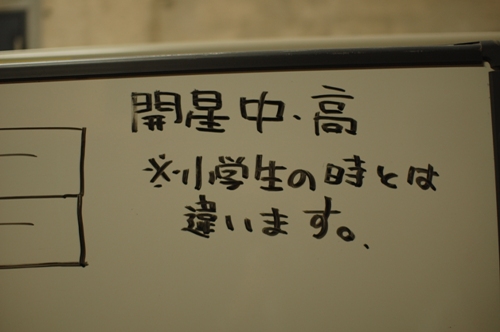 開星中・高
※小学生の時とは
違います。